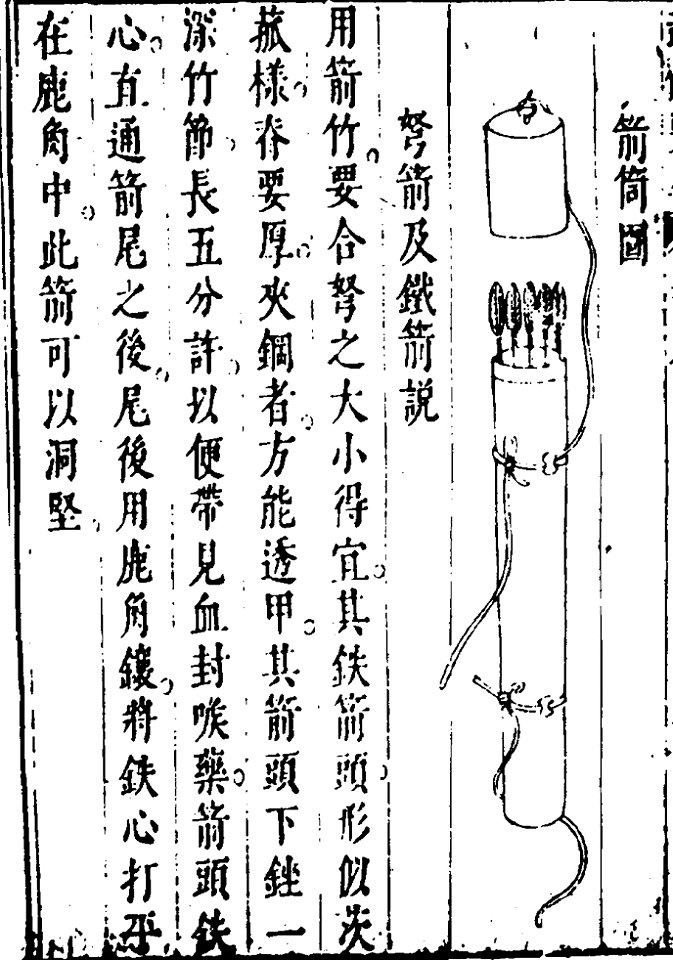 箭筒圖
弩箭及鐵箭説
用箭竹。要合弩之大小得宜。其鉄箭頭。形似茨
菰樣。脊要厚。夾鋼者。方能透甲。其箭頭下銼一
深竹節。長五分許。以便帶見血封喉藥。箭頭鉄
心。直通箭尾之後。尾後用鹿角鑲。將鉄心打平
在鹿角中。此箭可以洞堅。